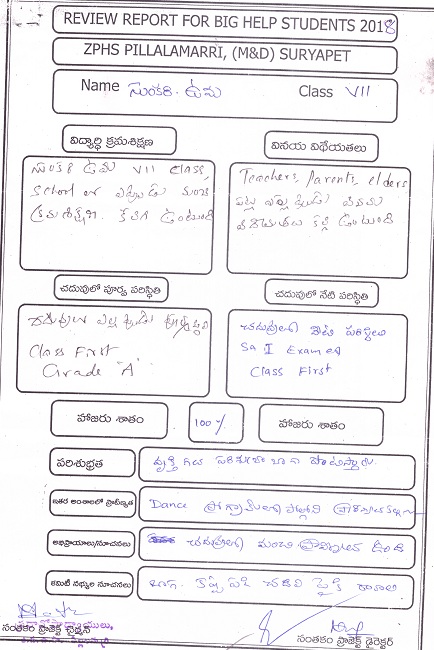 REVIEW REPORT FOR BIG HELP STUDENTS 2018
ZPHS PILLALAMARRI, (M&D) SURYAPET
Name సుంకరి. ఉమ Class VII
విద్యార్థి క్రమశిక్షణ
వినయ విధేయతలు
సుంకరి ఉమ VII Class,
School లో ఎప్పుడు మంచి
క్రమశిక్షణ కలిగి ఉంటుంది
Teachers, Parents, elders
పట్ల ఎల్లప్పుడు వినయ
విధేయతలు కల్గి ఉంటుంది
చదువులో పూర్వ పరిస్థితి
చదువులో నేటి పరిస్థితి
చదువులు ఎల్లప్పుడు
Class First
Grade "A"
చదువులో నేటి పరిస్థితి
SA I Exam
Class First
హాజరు శాతం 100% హాజరు శాతం
పరిశుభ్రత
వ్యక్తిగత పరిశుభ్రత బాగా పాటిస్తారు.
ఇతర అంశాలలో ప్రావీణ్యత
Dance ప్రోగ్రామ్‌లలో
అభిప్రాయాలు/సూచనలు
చదువులో మంచి ఉంది
కమిటీ సభ్యుల సూచనలు
బాగా కష్టపడి చదివి పైకి రావాలి
సంతకం ప్రాజెక్ట్ చైర్మన్
సంతకం ప్రాజెక్ట్ డైరెక్టర్